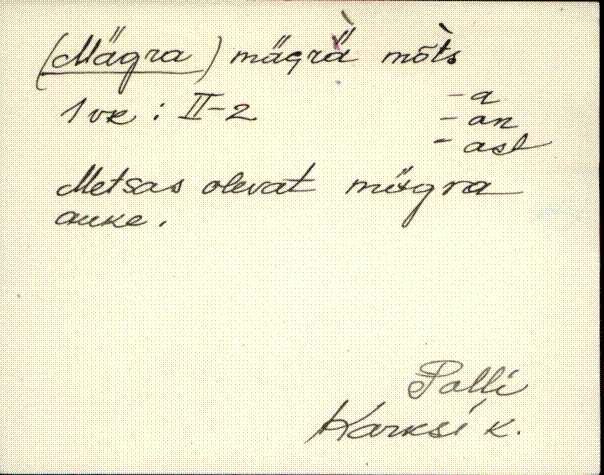 (Mägra) mägrä mõts
1 vk : II-2 -a
-an
-ast
Metsas olevat mägra
auke.
Polli
Karksi k.